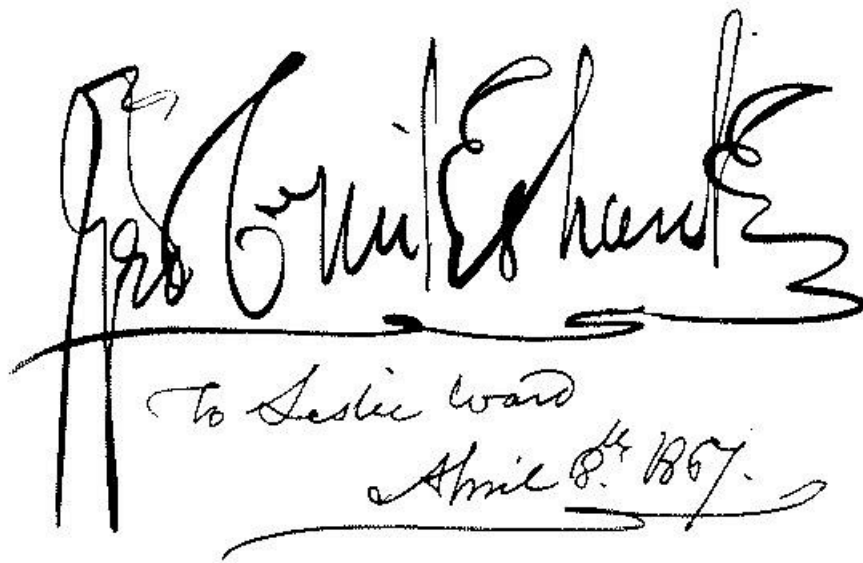 Geo Cruikshank
To Leslie Ward
April 8th. 1867.